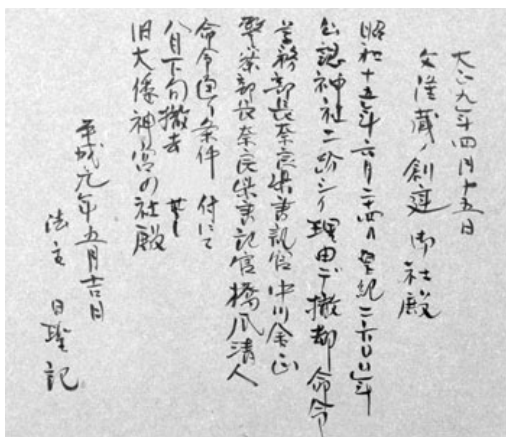 大正九年四月十五日
父隆蔵ノ創建 御社殿
昭和十五年六月二十四日 皇紀二六〇〇年
公認神社ニ 理由デ撤却命令
学務部長奈良県書記官中川金正
警察部長奈良県書記官橋爪清人
命令 条件 付にて
八月下旬撤去
旧大倭神宮の社殿
平成元年五月吉日
法主 日聖 記